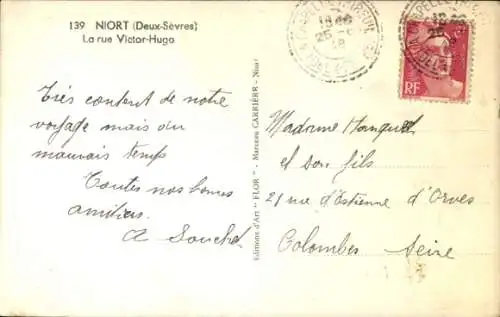 139 NIORT (Deux-Sèvres)
La rue Victor-Hugo
Très content de notre
voyage mais du
mauvais temps
Toutes nos bonnes
amitiés
A
Editions d'Art "FLOR" - Marceau CARRIÈRE - Niort
RF
Madame
et son fils
21 rue d'Estienne d'Orves
Colombes Seine